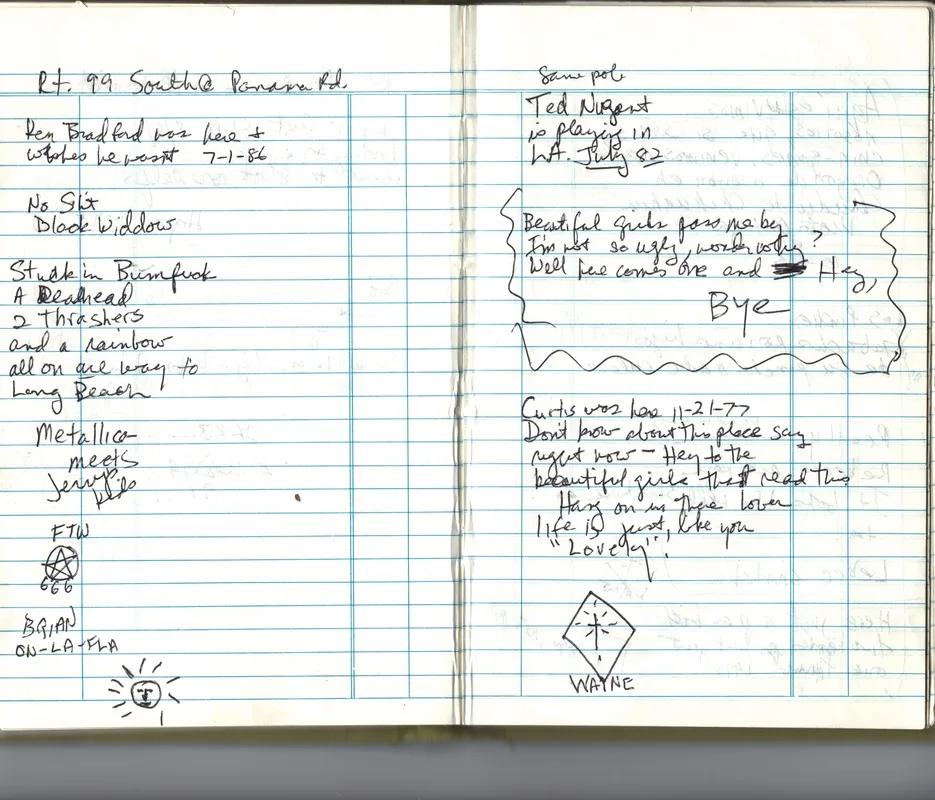 Rt. 99 South @ Panama Rd.
Ken Bradford was here +
wishes he wasn't 7-1-86
No Shit
Black Widdow
Stuck in Bumfuck
A Deadhead
2 Thrashers
and a rainbow
all on are way to
Long Beach
Metallica
meets
Jerry's
kids
FTW
666
BRIAN
ON-LA-FLA
Same pole
Ted Nugent
is playing in
LA. July 82
Beautiful girls pass me by
I'm not so ugly, wonder why?
Well here comes one and Hey,
Bye
Curtis was here 11-21-77
Don't know about this place say
right now - Hey to the
beautiful girls that read this
Hang on in there lover
life is just, like you
"Lovely"!
WAYNE